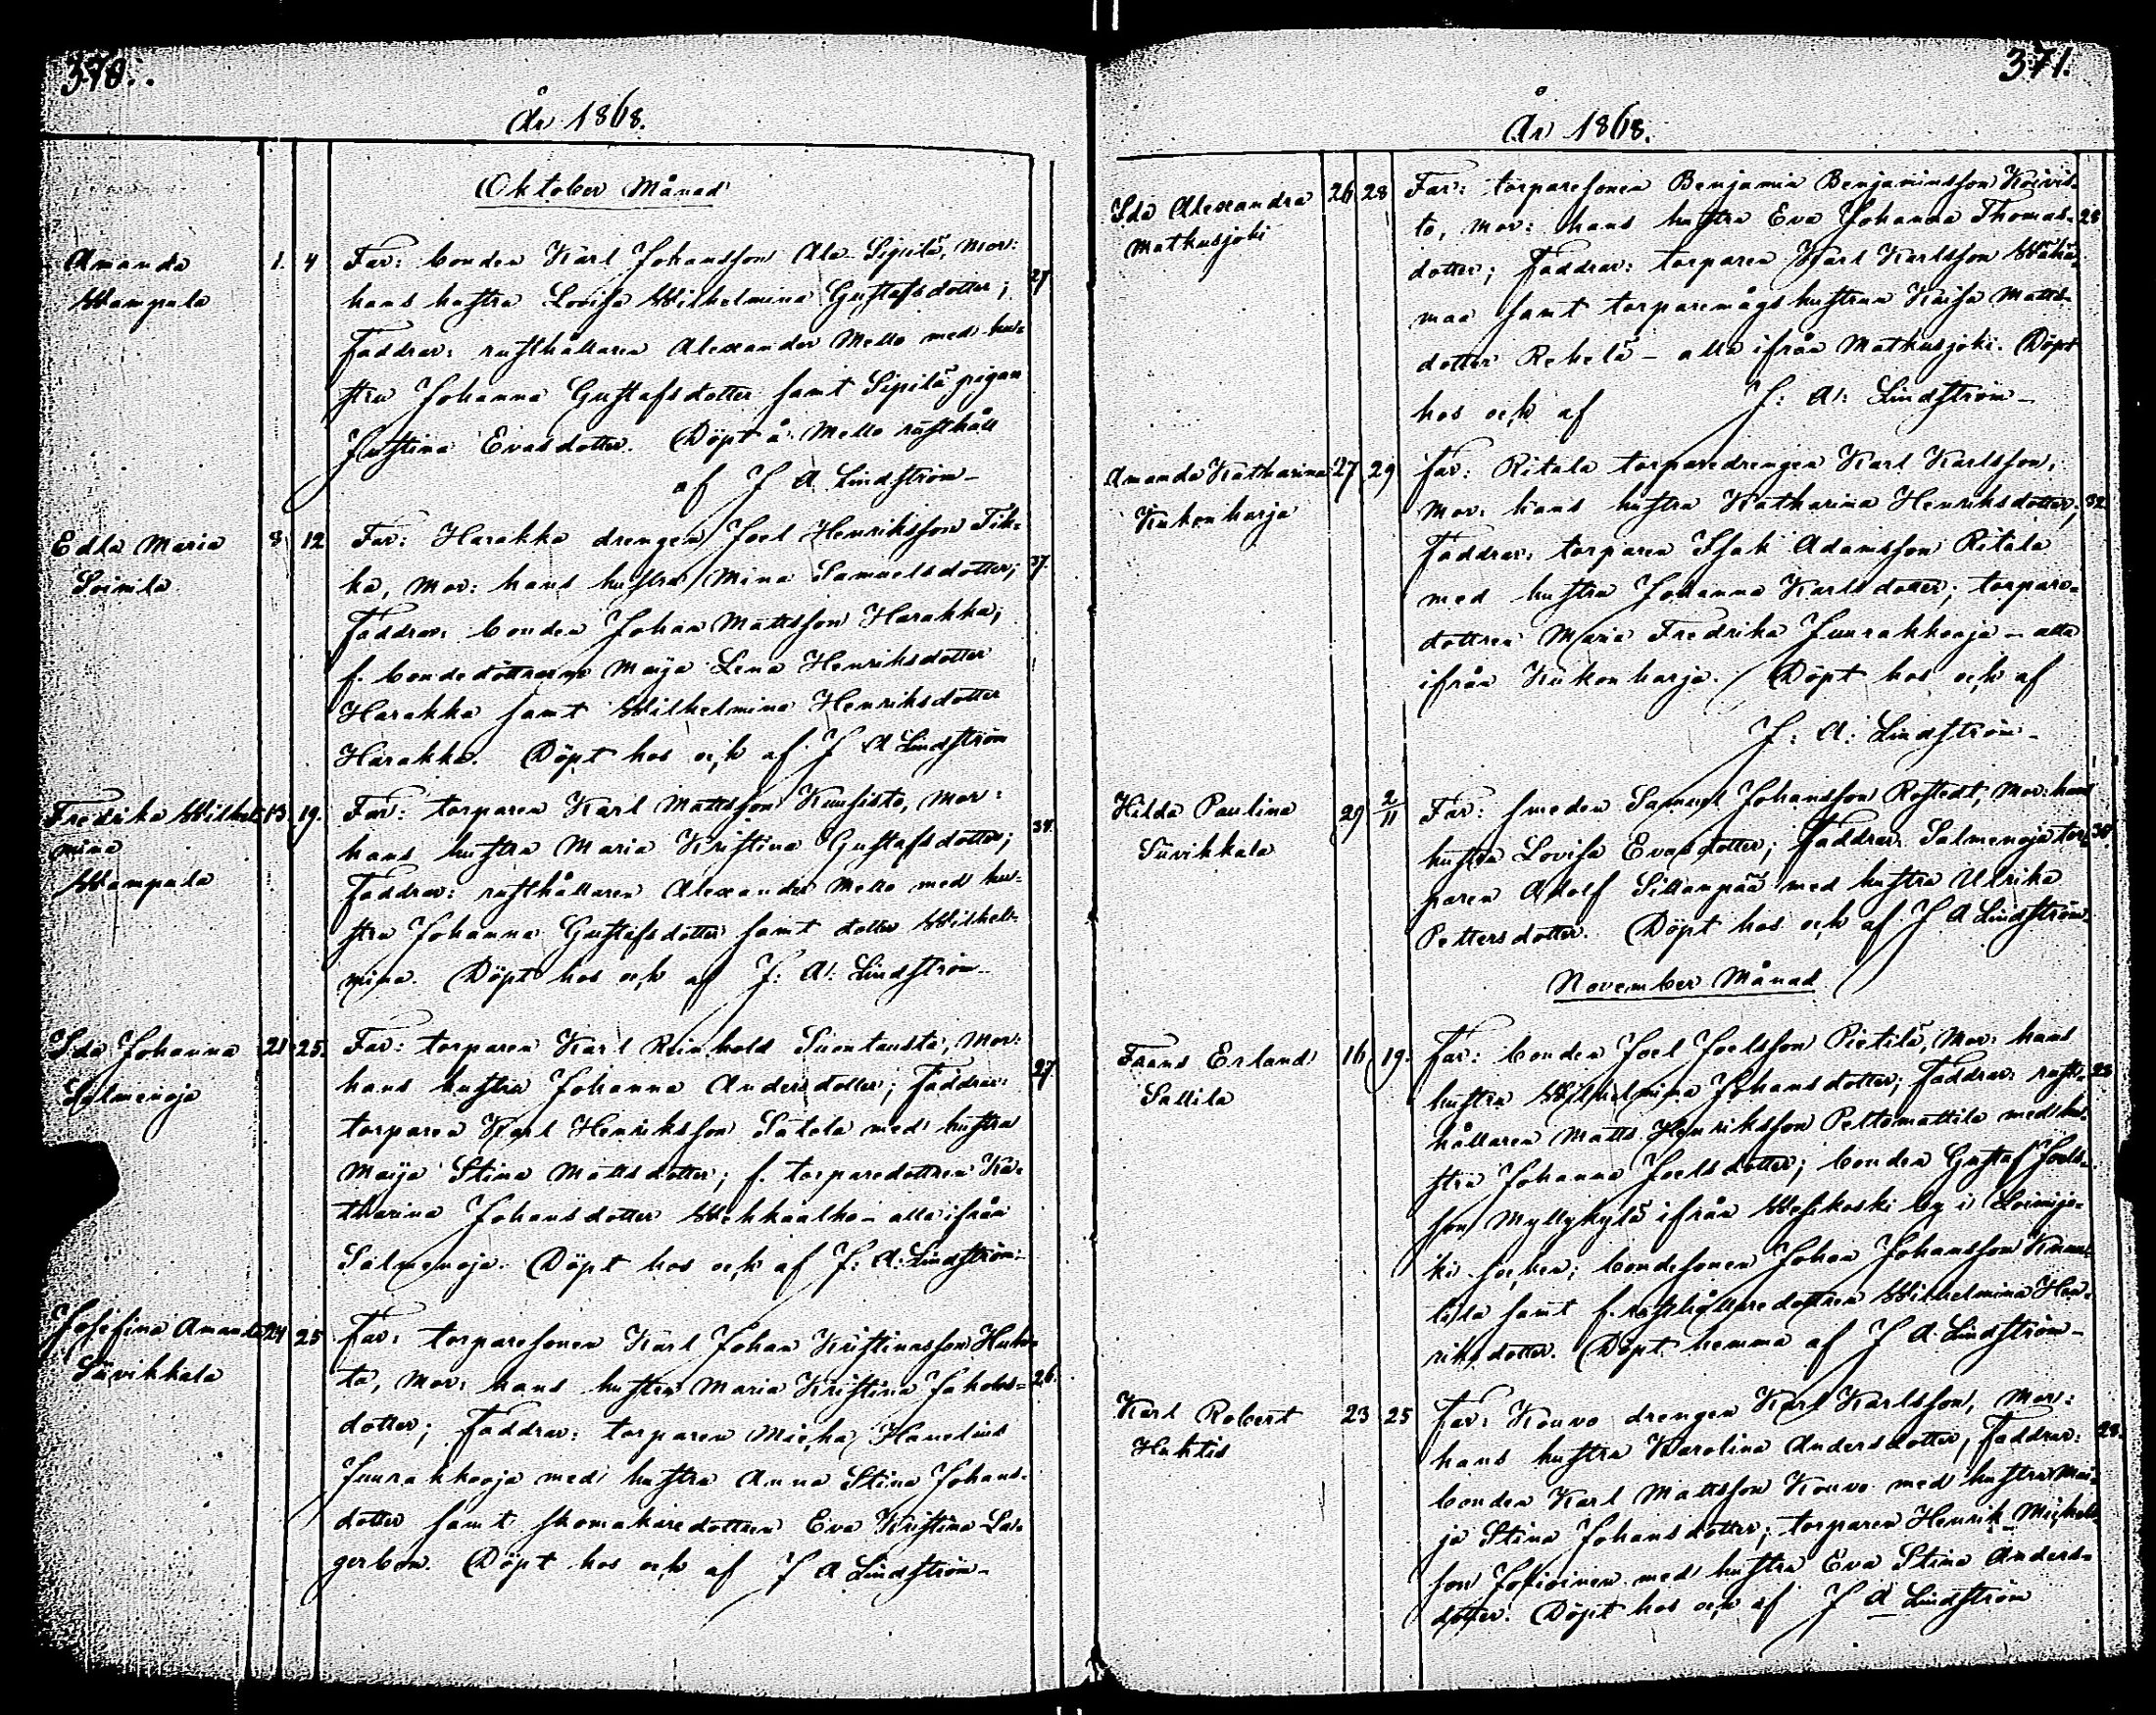 370.
År 1868.
Oktober Månad
Amanda 1. 4 Far: bonden Karl Johansson Ala-Sipilä, Mor:
Wampula hans hustru Lovisa Wilhelmina Gustafsdotter; 27
Faddrar: rusthållaren Alexander Mello med hu-
stru Johanna Gustafsdotter samt Sipilä pigan
Justina Evasdotter. Döpt å Mello rusthåll
af J A Lindström-
Edla Maria 8 12 Far: Harakka drengen Joel Henriksson Tik-
Soinila ka, Mor: hans hustru Mina Samuelsdotter; 37.
Faddrar: bonden Johan Mattsson Harakka,
f. bondedöttrarne Maija Lena Henriksdotter
Harakka samt Wilhelmina Henriksdotter
Harakka. Döpt hos och af J A Lindström
Fredrika Wilhel- 13 19. Far: torparen Karl Mattsson Kuusisto, Mor:
mina hans hustru Maria Kristina Gustafsdotter; 34.
Wampula Faddrar: rusthållaren Alexander Mello med hu-
stru Johanna Gustafsdotter samt dotter Wilhel-
mina. Döpt hos och af J: A: Lindström-
Ida Johanna 21 25. Far: torparen Karl Reinhold Suontausta, Mor:
Salmenoja hans hustru Johanna Andersdotter; Faddrar: 27.
torparen Karl Henriksson Satola med hustru
Maija Stina Mattsdotter; f. torparedottren Ka-
tharina Johansdotter Wehkaalho - alla ifrån
Salmenoja. Döpt hos och af J: A: Lindström-
Josefina Amanda 24 25 Far: torparesonen Karl Johan Kristinasson Huhta-
Süvikkala ta, Mor: hans hustru Maria Kristina Jakobs- 26.
dotter; Faddrar: torparen Micha Hanelius
Juurakkooja med hustru Anna Stina Johans-
dotter samt skomakaredottren Eva Kristina La-
gerbom. Döpt hos och af J A Lindström-
371.
År 1868.
Ida Alexandra 26 28 Far: torparesonen Benjamin Benjaminsson Koivis-
Matkusjoki to, Mor: hans hustru Eva Johanna Thomas- 28
dotter; Faddrar: torparen Karl Karlsson Wähä-
maa samt torparemågshustrun Kaisa Matts-
dotter Rekelä - alla ifrån Matkusjoki. Döpt
hos och af J: A: Lindström-
Amanda Katharina 27 29 Far: Ritala torparedrengen Karl Karlsson,
Kukonharja Mor: hans hustru Katharina Henriksdotter; 32
Faddrar: torparen Isak Adamsson Ritala
med hustru Johanna Karlsdotter; torpare-
dottren Maria Fredrika Juurakkooja - alla
ifrån Kukonharja. Döpt hos och af
J: A: Lindström-
Hilda Paulina 29 2/11 Far: smeden Samuel Johansson Rostedt, Mor: hans
Süvikkala hustru Lovisa Evasdotter; Faddrar: Salmenoja tor- 38.
paren Adolf Sillanpää med hustru Ulrika
Pettersdotter. Döpt hos och af J A Lindström.
November Månad
Frans Erland 16 19. Far: bonden Joel Joelsson Pietilä, Mor: hans
Sallila hustru Wilhelmina Johansdotter; Faddrar: rust- 23
hållaren Matts Henriksson Peltomattila med hu-
stru Johanna Joelsdotter; bonden Gustaf Joels-
son Myllykylä ifrån Wesikoski by i Loimijo-
ki socken; bondesonen Johan Johansson
samt f. rusthållaredottren Wilhelmina Hen-
riksdotter. Döpt hemma af J A Lindström-
Karl Robert 23 25 Far: Kouvo drengen Karl Karlsson, Mor:
Huhtis hans hustru Karolina Andersdotter; Faddrar: 28.
bonden Karl Mattsson Kouvo med hustru Mai-
ja Stina Johansdotter; torparen Henrik Mickels-
son Jokioinen med hustru Eva Stina Anders-
dotter. Döpt hos och af J A Lindström